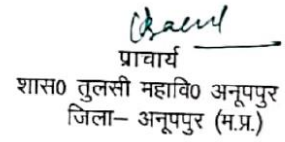 प्राचार्य
शास0 तुलसी महावि0 अनूपपुर
जिला– अनूपपुर (म.प्र.)